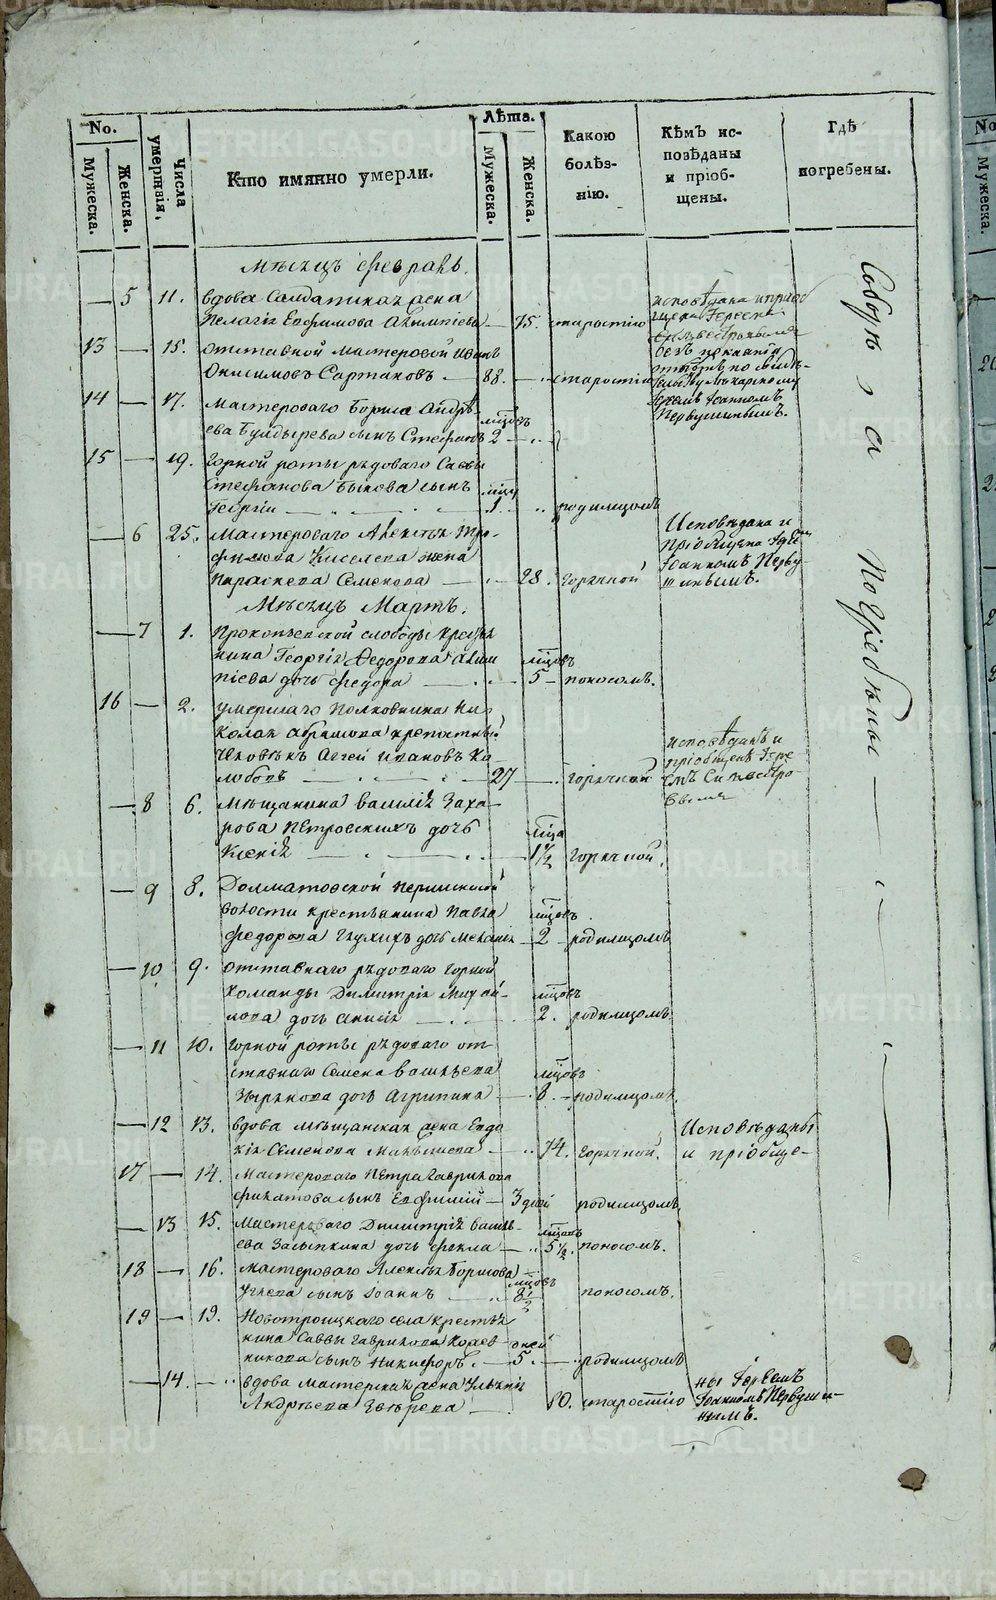 No.
Мужеска.
Женска.
Числа умершiя.
Кто имянно умерли.
Лѣта.
Мужеска.
Женска.
Какою болѣз-
нiю.
Кѣмъ ис-
повѣданы
и прiоб-
щены.
Гдѣ
погребены.
Мѣсяцъ Февраль.
— 5 11. вдова Салдатская жена
Пелагiя Евфимова — 75. старостiю
исповѣдана и прiоб
щена Iереемъ
13 — 15. отставной мастеровой Иванъ
Онисимовъ Сартаковъ — 88. — старостiю
безъ покаянiя
14 — 17. Мастероваго Бориса Андрѣ-
ева Булдырева сынъ Стефанъ мѣцовъ 2
Iереемъ Iоанномъ
Первушинымъ.
15 — 19. Горной роты рядоваго Саввы
Стефанова Быкова сынъ
Георгiй — мѣц. 1. родимцомъ
— 6 25. Мастероваго Алексѣя Тро-
фимова Киселева жена
Параскева Семенова — 28. горячкой
Исповѣдана и
прiобщена Iерее
Iоанномъ Перву
шинымъ.
Мѣсяцъ Мартъ.
— 7 1. Прокопьевской слободы крестья
нина Георгiя Федорова
дочь Федора — мѣцовъ 5 — поносомъ.
16 — 2. умершаго Полковника Ни-
колая Абрамова крепостный
человѣкъ Агѣй Ивановъ Ко
лобовъ — 27 — горячкой
исповѣданъ и
прiобщенъ Iере
емъ Сильвестро
вымъ
— 8 6. Мѣщанина Василiя Заха-
рова Петровскихъ дочь
Ксенiя — мѣца 1½ горячкой.
— 9 8. Долматовской Першинской
волости крестьянина Павла
Федорова Глухихъ дочь Меланiя — мѣцовъ 2 — родимцомъ
— 10 9. отставнаго рядоваго горной
команды Димитрiя Михай-
лова дочь Анисiя — мѣцовъ 2. родимцомъ
— 11 10. горной роты рядоваго от-
ставнаго Семена Васильева
Зырянова дочь Агрипина — мѣцовъ 8. — родимцомъ.
— 12 13. вдова мѣщанская жена Евдо
кiя Семенова — 74. горячкой.
Исповѣданы
и прiобще-
17 — 14. Мастероваго Петра Гаврилова
Филатова сынъ Евфимiй — 3 дней родимцомъ,
— 13 15. Мастероваго Димитрiя Василь-
ева Засыпкина дочь Фекла — мѣцовъ 5½. поносомъ.
18 — 16. мастероваго Алексѣя Борисова
сынъ Iоаннъ — мѣцовъ 8½ поносомъ.
19 — 19. Новотроицкаго села крестья
нина Саввы Гаврилова Кожев-
никова сынъ Никифоръ. — дней 5. — родимцомъ
— 14. — вдова мастерская жена Улянiя
Андрѣева Звѣрева — 80. старостiю
ны Iереемъ
Iоанномъ Первуши-
нымъ.
Собору за сл
Погребены
No
Мужеска.
METRIKI.GASO-URAL.RU